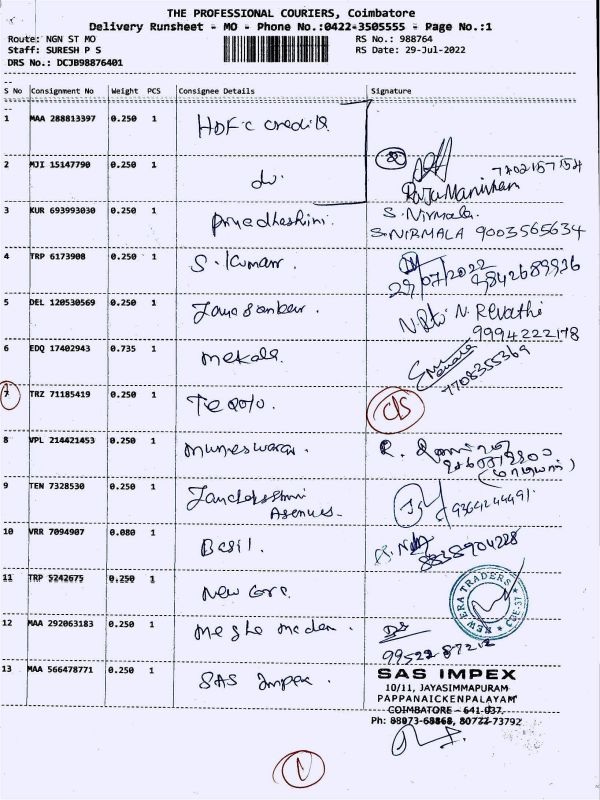 THE PROFESSIONAL COURIERS, Coimbatore
Delivery Runsheet - MO - Phone No.:0422-3505555 - Page No.:1
Route: NGN ST MO
RS No.: 988764
Staff: SURESH P S
RS Date: 29-Jul-2022
DRS No.: DCJB98876401
S No Consignment No Weight PCS Consignee Details Signature
1 MAA 288813397 0.250 1 HDFC credila
2 MJI 15147790 0.250 1 do. 7702157154
3 KUR 693993030 0.250 1 S. Nirmala.
S.NIRMALA 9003565634
4 TRP 6173908 0.250 1 S. Kumar.
29/07/2022 9842689936
5 DEL 120530569 0.250 1 N. Revathi
9994222178
6 EDQ 17402943 0.735 1 mekala. 7708355369
7 TRZ 71185419 0.250 1 C/S
8 VPL 214421453 0.250 1
9 TEN 7328530 0.250 1 Avenues.
10 VRR 7094907 0.080 1 Basil. 8838904228
11 TRP 5242675 1 NEW ERA TRADERS CBE-37
12 MAA 292063183 0.250 1 DS
9952287212
13 MAA 566478771 0.250 1 SAS Impex.
SAS IMPEX
10/11, JAYASIMMAPURAM
PAPPANAICKENPALAYAM
COIMBATORE - 641 037.
Ph: 88073-68868, 80777-73792